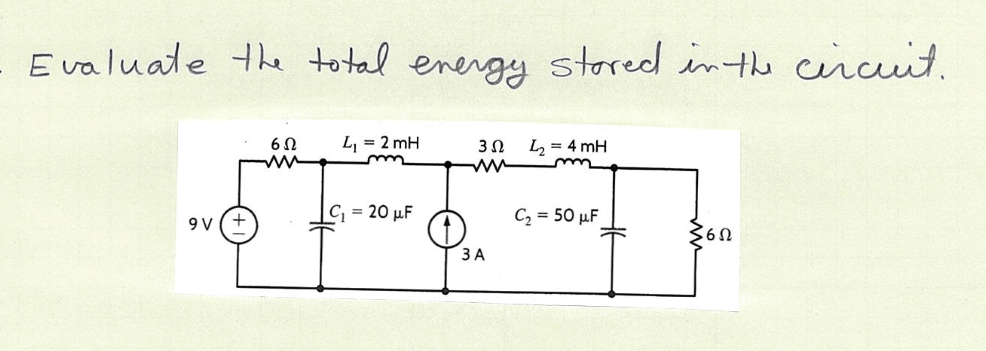 Evaluate the total energy stored in the circuit.
6Ω L₁ = 2 mH 3Ω L₂ = 4 mH
9 V + − C₁ = 20 µF C₂ = 50 µF 6Ω
3 A